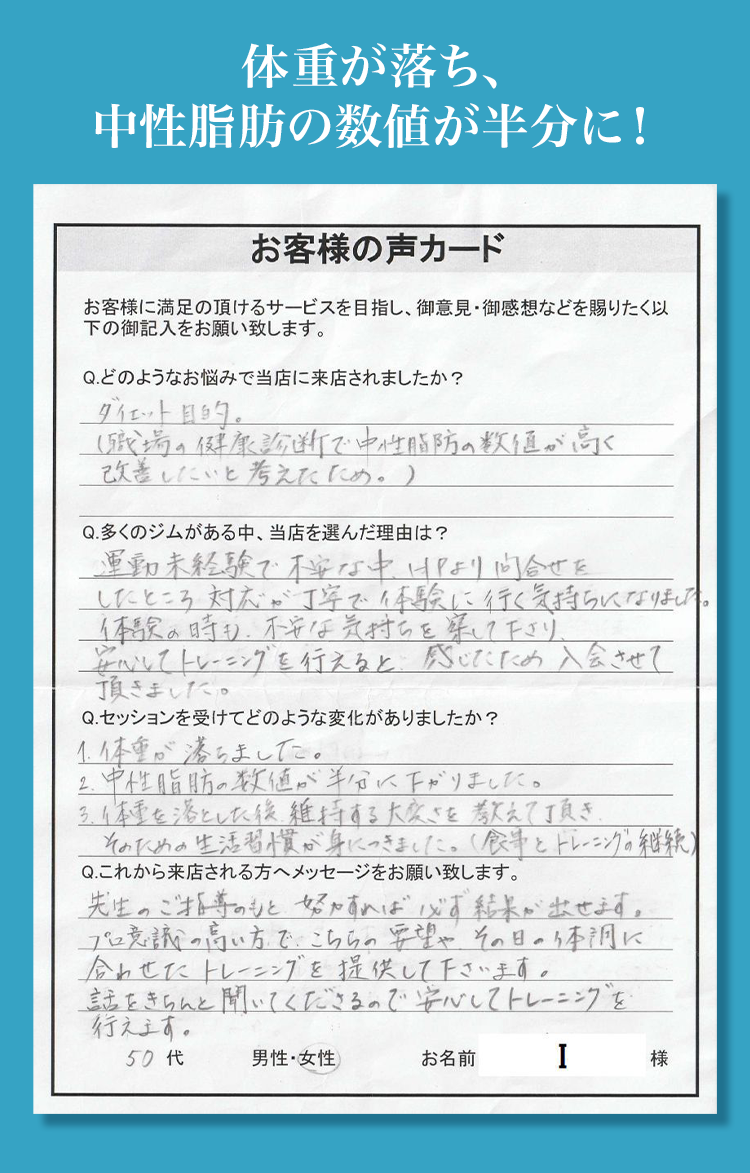 体重が落ち、
中性脂肪の数値が半分に！
お客様の声カード
お客様に満足の頂けるサービスを目指し、御意見・御感想などを賜りたく以
下の御記入をお願い致します。
Q.どのようなお悩みで当店に来店されましたか？
ダイエット目的。
(職場の健康診断で中性脂肪の数値が高く
改善したいと考えたため。)
Q.多くのジムがある中、当店を選んだ理由は？
運動未経験で不安な中、HPより問合せを
したところ対応が丁寧で体験に行く気持ちになりました。
体験の時も、不安な気持ちを察して下さり、
安心してトレーニングを行えると感じたため入会させて
頂きました。
Q.セッションを受けてどのような変化がありましたか？
1.体重が落ちました。
2.中性脂肪の数値が半分に下がりました。
3.体重を落とした後、維持する大変さを教えて頂き、
そのための生活習慣が身につきました。(食事とトレーニングの継続)
Q.これから来店される方へメッセージをお願い致します。
先生のご指導のもと努力すれば必ず結果が出せます。
プロ意識の高い方で、こちらの要望や、その日の体調に
合わせたトレーニングを提供して下さいます。
話をきちんと聞いてくださるので安心してトレーニングを
行えます。
50代 男性・女性 お名前 I 様